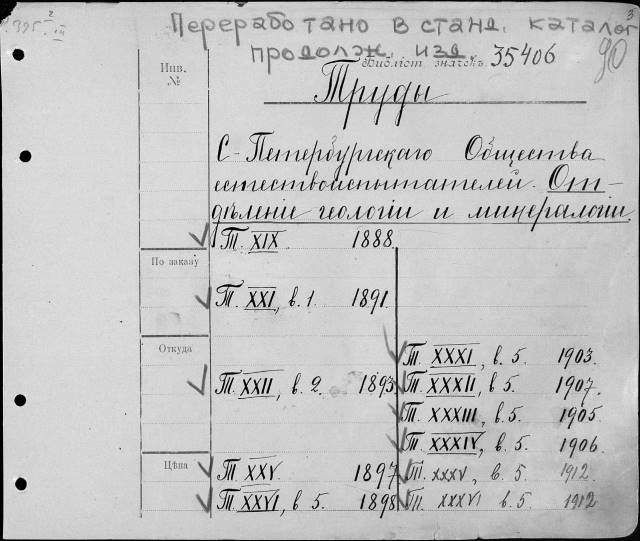 Переработано в станд. каталог
продолж. изд.
Инв.
№
Библіот. значекъ 35406
90
3
Труды
С-Петербургскаго Общества
естествоиспытателей. От-
дѣленіе геологіи и минералогіи
Т. XIX 1888.
По заказу
Т. XXI, в. 1 1891.
Откуда
Т. XXXI, в. 5. 1903.
Т. XXII, в. 2. 1893
Т. XXXII, в 5. 1907.
Т. XXXIII, в. 5 1905
Т. XXXIV, в. 5. 1906
Цѣна
Т. XXV 1897
Т. XXXV, в. 5. 1912.
Т. XXVI, в. 5 1898
Т. XXXVI в. 5. 1912